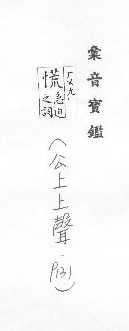 彙音寶鑑
慌
急迫
之詞
(公上上聲